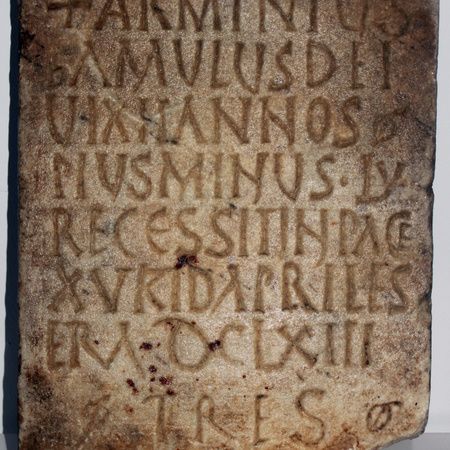 + ARMINIUS
FAMULUS DEI
UIXIT ANNOS
PLUS MINUS · LV
RECESSIT IN PACE
XV KLD APRILES
ERA DCLXIII
TRES